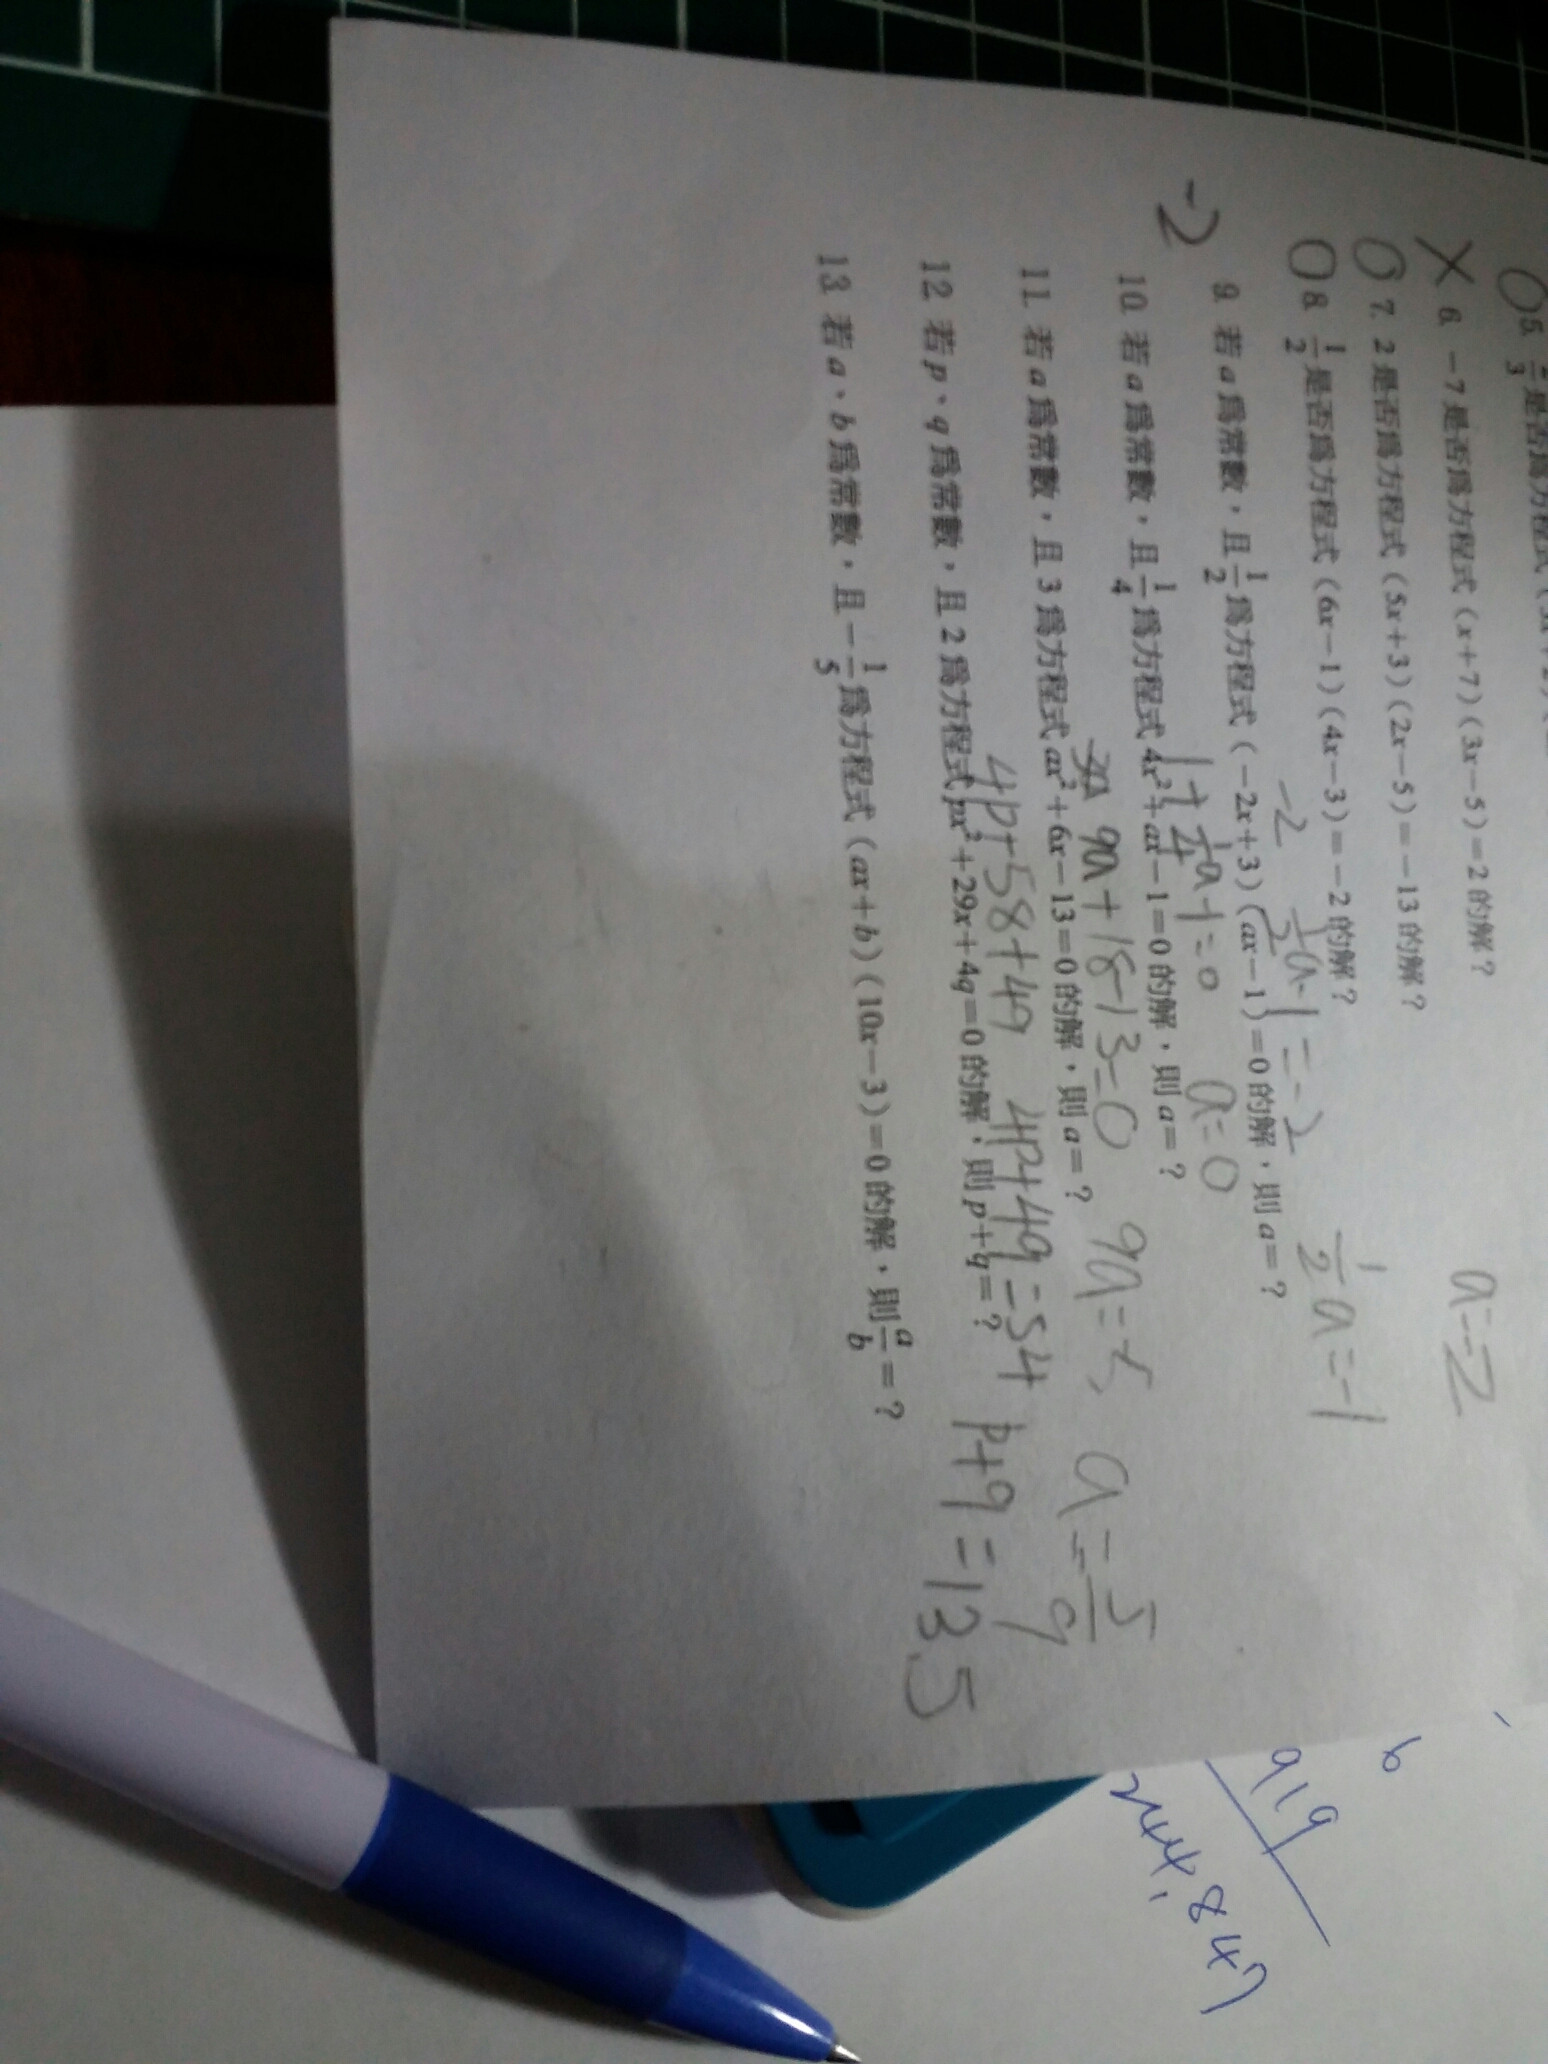 5. 3 是否為方程式
X 6. －7是否為方程式 (x+7)(3x－5)=2的解？
O 7. 2是否為方程式 (5x+3)(2x－5)=－13的解？
a=-2
O 8. 1/2是否為方程式 (6x－1)(4x－3)=－2的解？
-2 1/2a-1=-2 1/2a=-1
-2 9. 若a為常數，且1/2為方程式 (－2x+3)(ax－1)=0的解，則a=？
1+1/4a-1=0 a=0
10. 若a為常數，且1/4為方程式4x²+ax－1=0的解，則a=？
9a+18-13=0 9a=-5 a=-5/9
11. 若a為常數，且3為方程式ax²+6x－13=0的解，則a=？
4p+58+4q 4p+4q=54 p+q=13.5
12. 若p、q為常數，且2為方程式px²+29x+4q=0的解，則p+q=？
13. 若a、b為常數，且－1/5為方程式 (ax+b)(10x－3)=0的解，則a/b=？